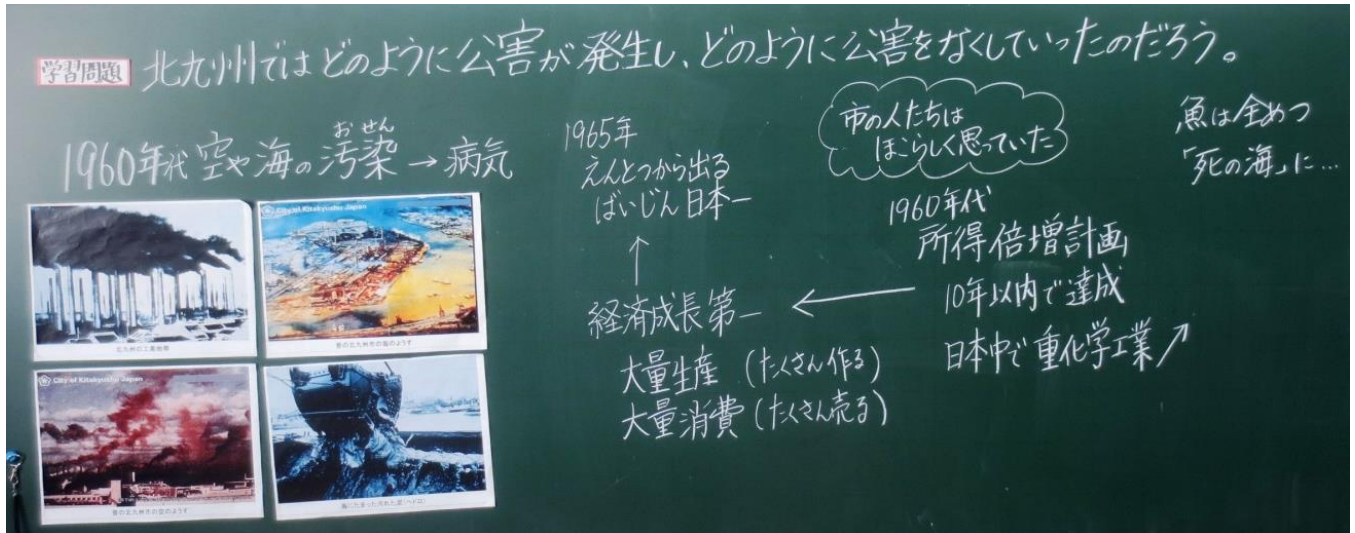 学習問題
北九州ではどのように公害が発生し、どのように公害をなくしていったのだろう。
おせん
1960年代 空や海の汚染→病気
City of Kitakyushu Japan
北九州の工業地帯
昔の北九州市の海のようす
City of Kitakyushu Japan
昔の北九州市の空のようす
海にたまった汚れた泥(ヘドロ)
1965年
えんとつから出る
ばいじん日本一
↑
経済成長第一
大量生産(たくさん作る)
大量消費(たくさん売る)
←
市の人たちは
ほこらしく思っていた
1960年代
所得倍増計画
10年以内で達成
日本中で重化学工業↗
魚は全めつ
「死の海」に…